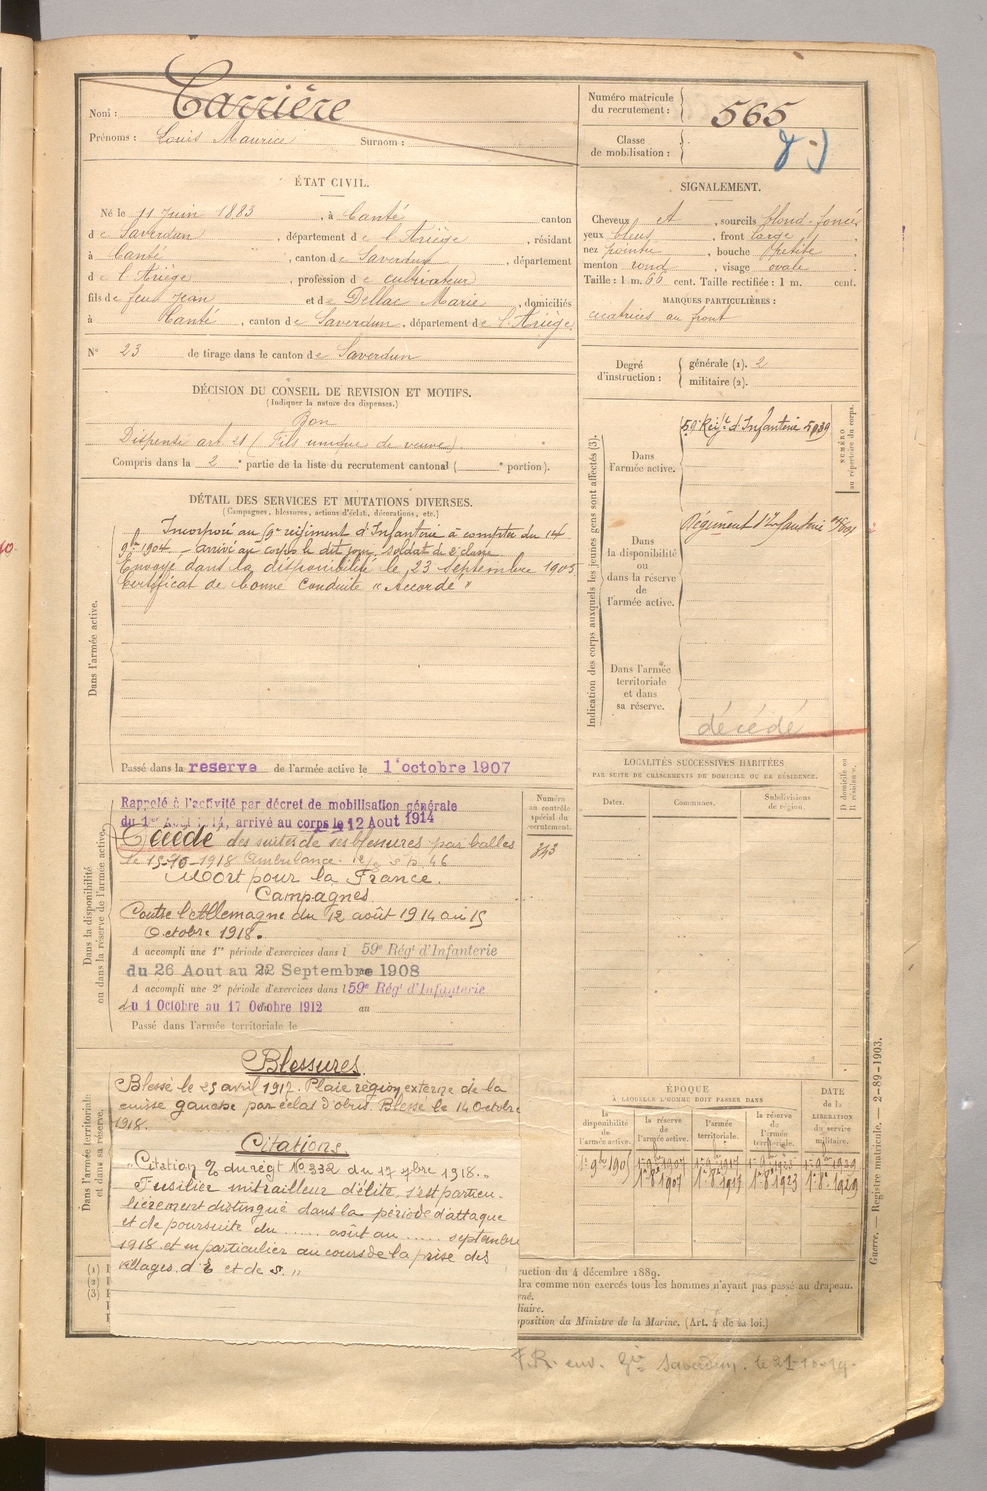 Nom : Carrière
Prénoms : Louis Maurice Surnom :
Numéro matricule du recrutement : 565
Classe de mobilisation :
ÉTAT CIVIL.
Né le 11 Juin 1883, à Canté canton
de Saverdun, département de l'Ariège, résidant
à Canté, canton de Saverdun, département
de l'Ariège, profession de cultivateur
fils de feu Jean et de Dellac Marie, domiciliés
à Canté, canton de Saverdun, département de l'Ariège
N° 23 de tirage dans le canton de Saverdun
SIGNALEMENT.
Cheveux et, sourcils blond-foncé
yeux bleus, front large,
nez pointu, bouche petite,
menton rond, visage ovale
Taille : 1 m. 66 cent. Taille rectifiée : 1 m. cent.
MARQUES PARTICULIÈRES :
cicatrices au front
Degré d'instruction : générale (1). 2
militaire (2).
DÉCISION DU CONSEIL DE REVISION ET MOTIFS.
(Indiquer la nature des dispenses.)
Bon
Dispensé art 21 (Fils unique de veuve)
Compris dans la 2e partie de la liste du recrutement cantonal ( e portion).
DÉTAIL DES SERVICES ET MUTATIONS DIVERSES.
(Campagnes, blessures, actions d'éclat, décorations, etc.)
Dans l'armée active.
Incorporé au 59e régiment d'Infanterie à compter du 14
9bre 1904 – arrivé au corps le dit jour, soldat de 2e classe
Envoyé dans la disponibilité le 23 septembre 1905
Certificat de bonne conduite "Accordé"
Passé dans la reserve de l'armée active le 1 octobre 1907
Indication des corps auxquels les jeunes gens sont affectés (3).
NUMÉRO au répertoire du corps.
Dans l'armée active.
59e Régt d'Infanterie 5939
Dans la disponibilité ou dans la réserve de l'armée active.
Régiment d'Infanterie
Dans l'armée territoriale et dans sa réserve.
décédé
LOCALITÉS SUCCESSIVES HABITÉES
PAR SUITE DE CHANGEMENTS DE DOMICILE OU DE RÉSIDENCE.
Dates. Communes. Subdivisions de région. D domicile ou R résidence.
Numéro au contrôle spécial du recrutement.
343
Dans la disponibilité ou dans la réserve de l'armée active.
Rappelé à l'activité par décret de mobilisation générale
du 1er Aout 1914, arrivé au corps le 12 Aout 1914
Décédé des suites de ses blessures par balles
le 15-10-1918 Ambulance 12/2 S.P. 46
Mort pour la France.
Campagnes
Contre l'Allemagne du 12 août 1914 au 15
Octobre 1918.
A accompli une 1re période d'exercices dans l 59e Régt d'Infanterie
du 26 Aout au 22 Septembre 1908
A accompli une 2e période d'exercices dans l 59e Régt d'Infanterie
du 1 Octobre au 17 Octobre 1912 au
Passé dans l'armée territoriale le
Dans l'armée territoriale et dans sa réserve.
Blessures.
Blessé le 25 avril 1917. Plaie région externe de la
cuisse gauche par éclat d'obus. Blessé le 14 Octobre
1918.
Citations.
"Citation % du régt No. 332 du 17 9bre 1918.,,
Fusilier mitrailleur d'élite, s'est particu-
lièrement distingué dans la période d'attaque
et de poursuite du ...... août au ...... septembre
1918 et en particulier au cours de la prise des
villages d'E et de S. ,,
ÉPOQUE
À LAQUELLE L'HOMME DOIT PASSER DANS
la disponibilité de l'armée active. la réserve de l'armée active. l'armée territoriale. la réserve de l'armée territoriale.
DATE de la LIBÉRATION du service militaire.
1er 9bre 1907 1er 9bre 1929
1er 8bre 1907 1er 8bre 1917 1er 8bre 1923 1er 8bre 1929
(1)
(2)
(3)
ruction du 4 décembre 1889.
dra comme non exercés tous les hommes n'ayant pas passé au drapeau.
rné.
liaire.
position du Ministre de la Marine. (Art. 4 de la loi.)
Guerre. — Registre matricule. — 2-89-1903.
F.R. env. Gie Saverdun. le 21-10-19.